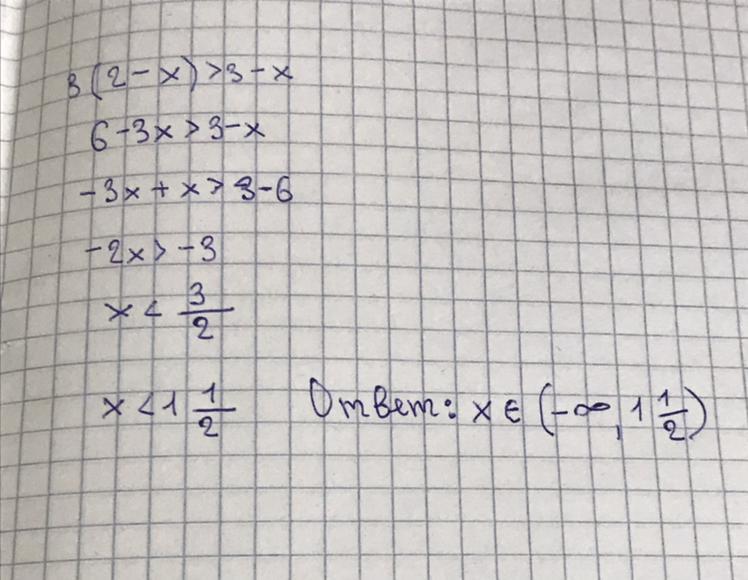 3(2-x)>3-x
6-3x>3-x
-3x+x>3-6
-2x>-3
x<3/2
x<1 1/2 Ответ: x∈(-∞, 1 1/2)